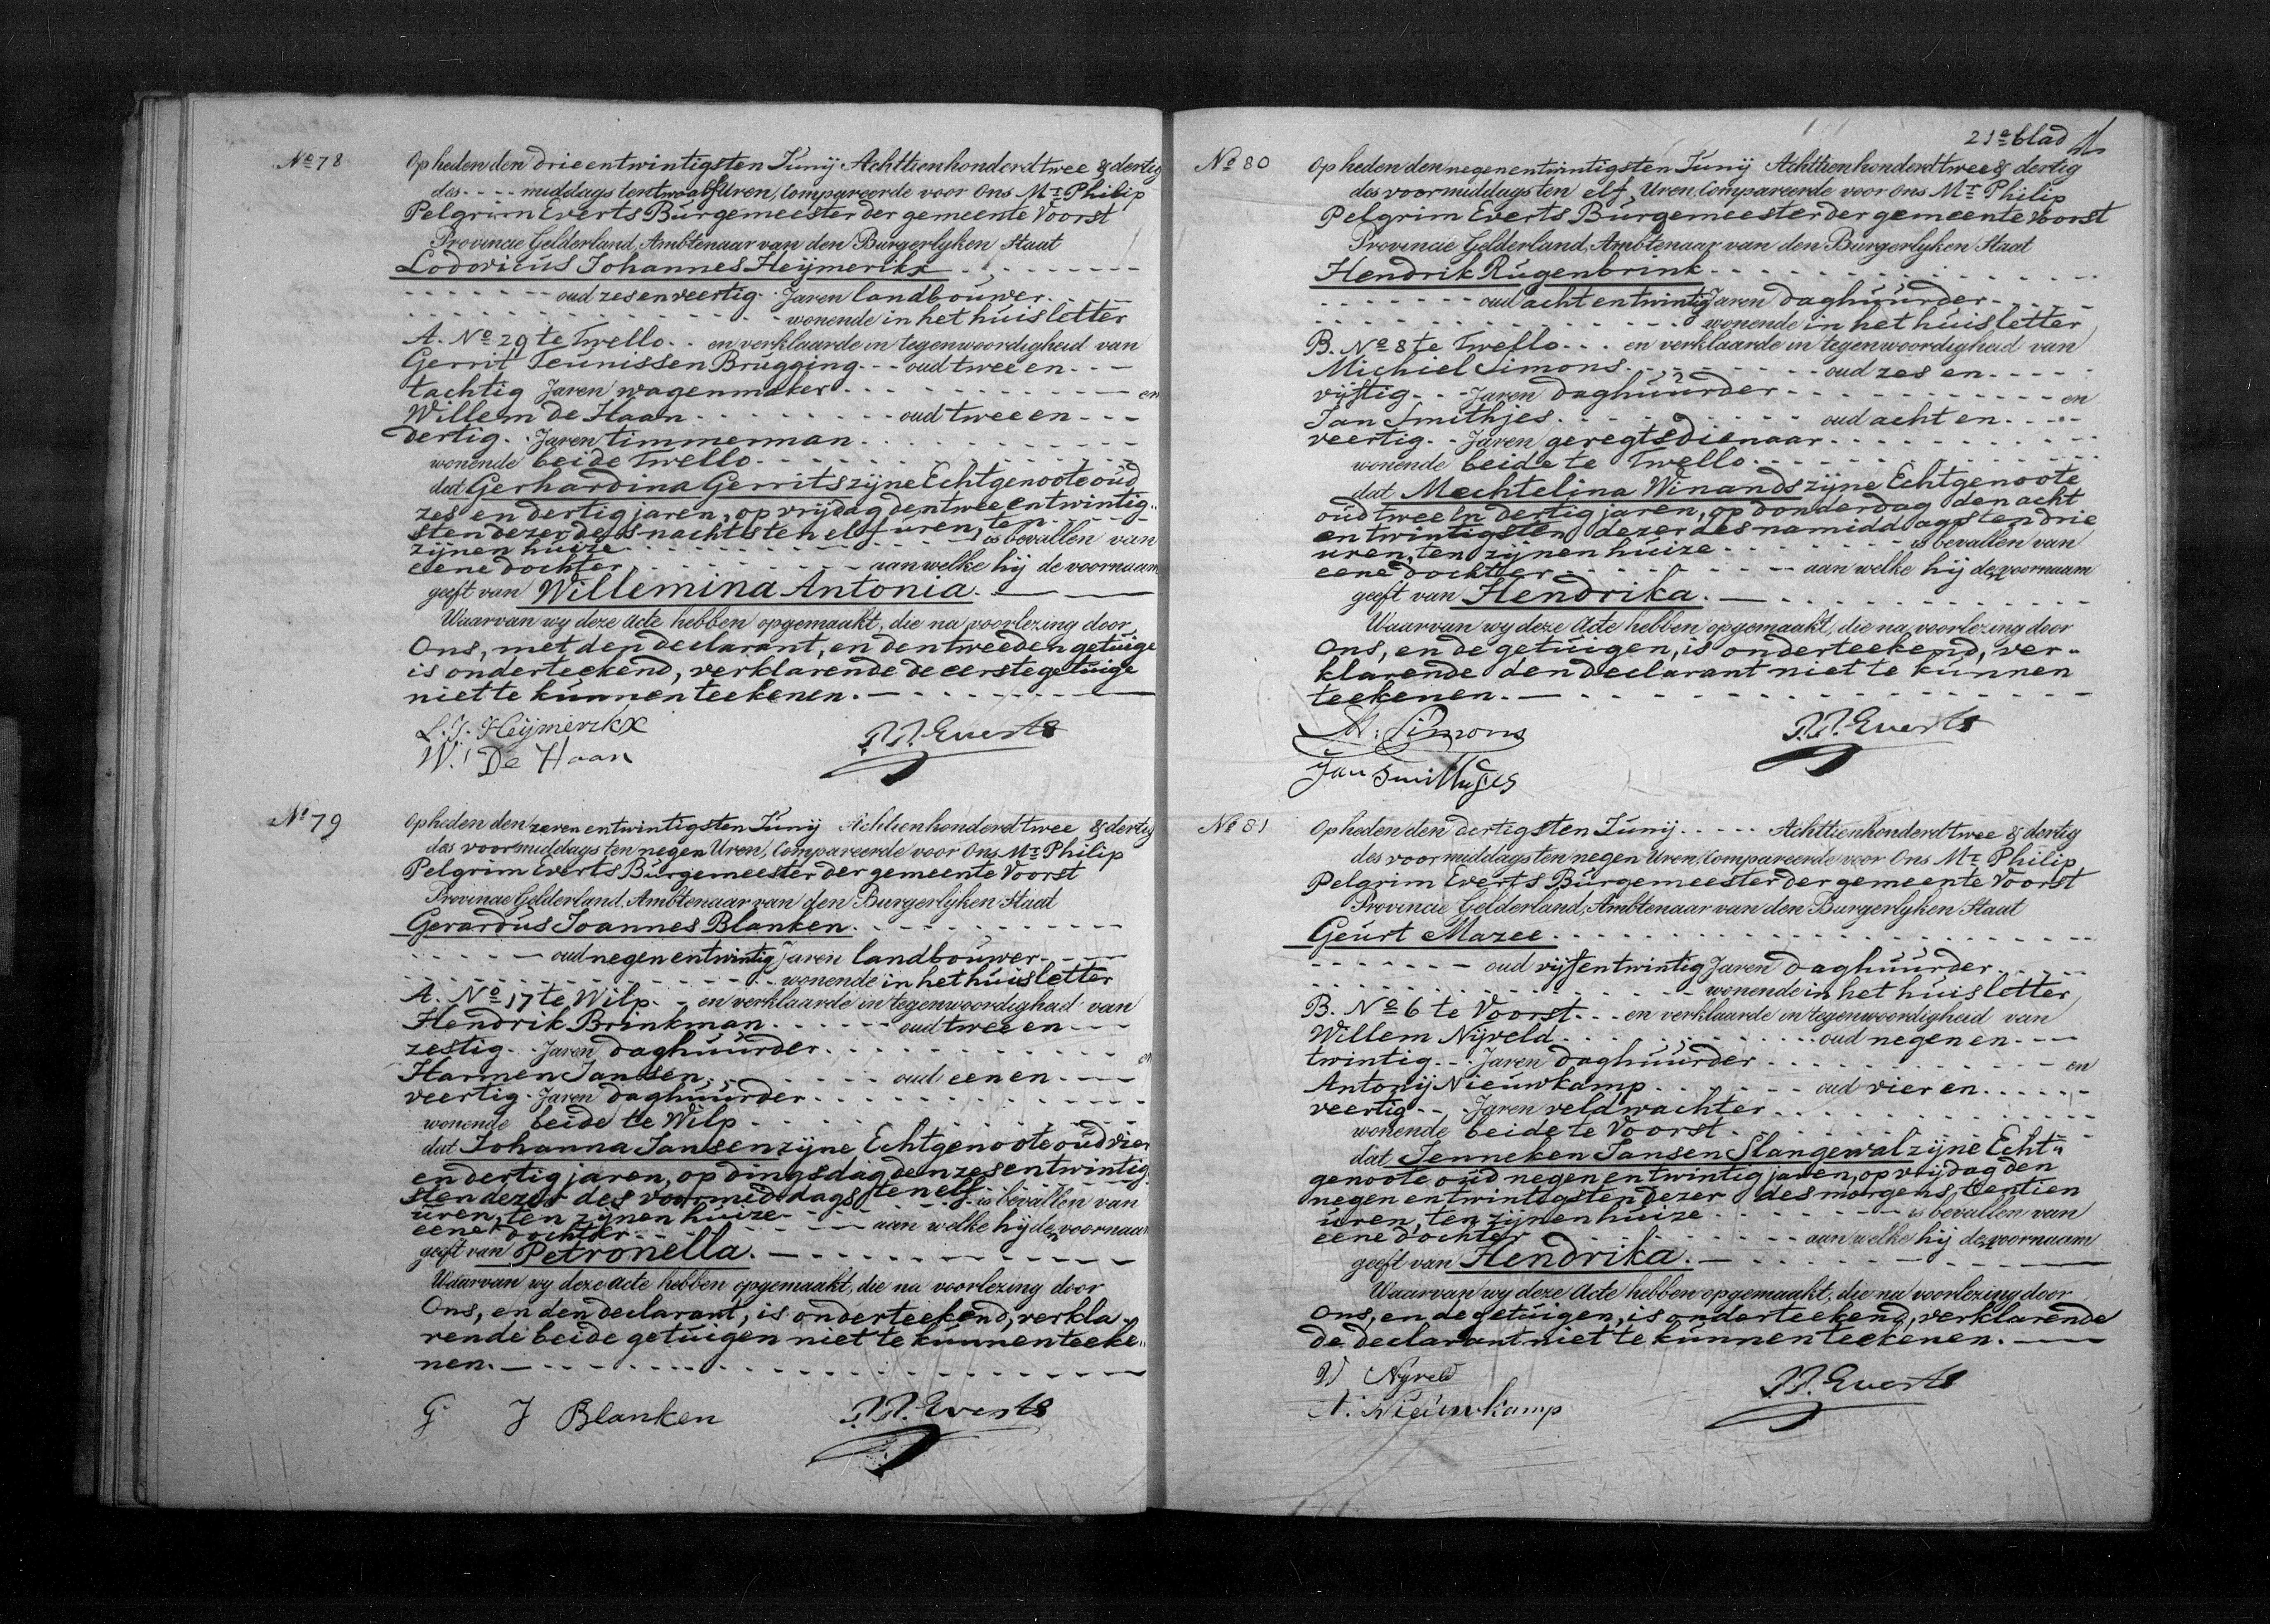 No 78
Op heden den drieentwintigsten Junij Achttienhonderd twee & dertig
des - - - - middags ten twaalf Uren, Compareerde voor Ons Mr Philip
Pelgrim Everts Burgemeester der gemeente Voorst
Provincie Gelderland, Ambtenaar van den Burgerlyken Staat
Lodovicus Johannes Heijmerikx
oud zesenveertig Jaren landbouwer
wonende in het huis letter
A. No 29 te Twello en verklaarde in tegenwoordigheid van
Gerrit Teunissen Brugging oud twee en
tachtig Jaren wagenmaker en
Willem de Haan oud twee en
dertig Jaren timmerman
wonende beide Twello
dat Gerhardina Gerrits zijne Echtgenoote oud
zes en dertig jaren, op vrijdag den twee entwintig„
sten dezer des nachts ten elf uren, ten
zijnen huize is bevallen van
eene dochter aan welke hij de voornaam
geeft van Willemina Antonia.
Waarvan wy deze Acte hebben opgemaakt, die na voorlezing door
Ons, met den declarant, en den tweeden getuige
is onderteekend, verklarende de eerste getuige
niet te kunnen teekenen.
L. J. Heijmerikx
P.P. Everts
W. De Haan
No 79
Op heden den zeven entwintigsten Junij Achttienhonderd twee & dertig
des voormiddags ten negen Uren, Compareerde voor Ons Mr Philip
Pelgrim Everts Burgemeester der gemeente Voorst
Provincie Gelderland, Ambtenaar van den Burgerlyken Staat
Gerardus Joannes Blanken
oud negen entwintig Jaren landbouwer
wonende in het huis letter
A. No 17 te Wilp en verklaarde in tegenwoordigheid van
Hendrik Brinkman oud twee en
zestig Jaren daghuurder en
Harmen Jansen oud een en
veertig Jaren daghuurder
wonende beide te Wilp
dat Johanna Jansen zijne Echtgenoote oud vier
en dertig jaren, op dingsdag den zes entwintig
sten dezer des voormiddags ten elf
uren, ten zijnen huize is bevallen van
eene dochter aan welke hij den voornaam
geeft van Petronella.
Waarvan wy deze Acte hebben opgemaakt, die na voorlezing door
Ons, en den declarant, is onderteekend, verkla„
rende beide getuigen niet te kunnen teeke„
nen.
G J Blanken
P.P. Everts
21e blad
No 80
Op heden den negen entwintigsten Junij Achttienhonderd twee & dertig
des voormiddags ten elf Uren, Compareerde voor Ons Mr Philip
Pelgrim Everts Burgemeester der gemeente Voorst
Provincie Gelderland, Ambtenaar van den Burgerlyken Staat
Hendrik Rugenbrink
oud acht entwintig Jaren daghuurder
wonende in het huis letter
B. No 8 te Twello en verklaarde in tegenwoordigheid van
Michiel Simons oud zes en
vijftig Jaren daghuurder en
Jan Smithjes oud acht en
veertig Jaren geregtsdienaar
wonende beide te Twello
dat Mechtelina Winands zijne Echtgenoote
oud twee en dertig jaren, op donderdag den acht
en twintigsten dezer des namiddags ten drie
uren, ten zijnen huize is bevallen van
eene dochter aan welke hij den voornaam
geeft van Hendrika.
Waarvan wy deze Acte hebben opgemaakt, die na voorlezing door
Ons, en de getuigen, is onderteekend, ver„
klarende den declarant niet te kunnen
teekenen.
M. Simons
P.P. Everts
Jan Smithjes
No 81
Op heden den dertigsten Junij Achttienhonderd twee & dertig
des voormiddags ten negen Uren, Compareerde voor Ons Mr Philip
Pelgrim Everts Burgemeester der gemeente Voorst
Provincie Gelderland, Ambtenaar van den Burgerlyken Staat
Geurt Mazee
oud vijf entwintig Jaren daghuurder
wonende in het huis letter
B. No 6 te Voorst en verklaarde in tegenwoordigheid van
Willem Nijveld oud negen en
twintig Jaren daghuurder en
Antonij Nieuwkamp oud vier en
veertig Jaren veldwachter
wonende beide te Voorst
dat Jenneken Jansen Slangewal zijne Echt„
genoote oud negen entwintig jaren, op vrijdag den
negen entwintigsten dezer des morgens, ten tien
uren, ten zijnen huize is bevallen van
eene dochter aan welke hij den voornaam
geeft van Hendrika.
Waarvan wy deze Acte hebben opgemaakt, die na voorlezing door
Ons, en de getuigen, is onderteekend, verklarende
de declarant niet te kunnen teekenen.
W Nijveld
P.P. Everts
A. Nieuwkamp